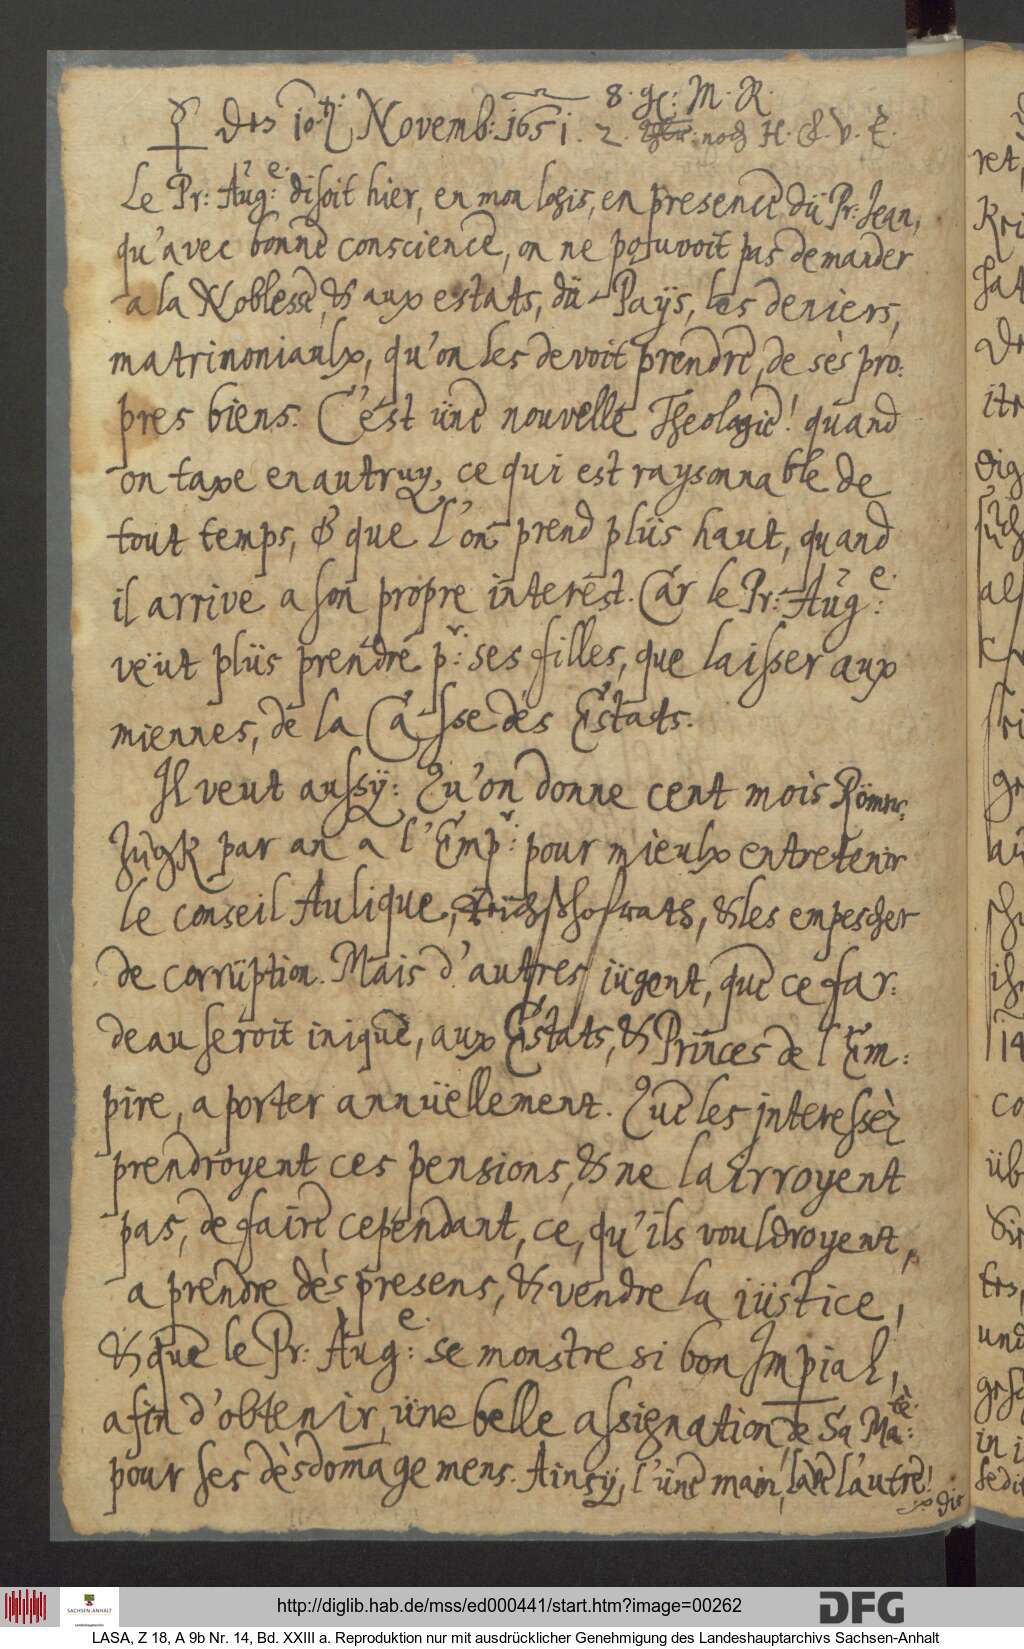 8. gl: M. R.
☿ den 10.ten Novemb: 1651. 2. noch H. C. V. E.
Le Pr: Aug:e disoit hier, en mon logis, en presence dü Pr: Jean,
qu'avec bonne conscience, on ne pouvoit pas demander
a la Noblesse, & aux estats, dü Paÿs, les deniers,
matrinoniaulx, qu'on les devoit prendre, de ses pro:
pres biens. C'est üne nouvelle Theologie! quand
on taxe en autruy, ce qui est raysonnable de
tout temps, & que l'on prend plüs haut, quand
il arrive a son propre interest. Car le Pr: Aug:e
veüt plüs prendre p:r ses filles, que laisser aux
miennes, de la Casse des Estats.
Il veut aussÿ: Qu'on donne cent mois Römer:
Zugk par an a l'Emp:r pour mieulx entretenir
le conseil Aulique, Reichshofraths, & les empescher
de corrüption. Mais d'autres jügent, que ce far:
deau seroit inique, aux Estats, & Princes de l'Em:
pire, a porter annüellement. Que les interessèz
prendroyent ces pensions, & ne lairroyent
pas, de faire cependant, ce, qu'ils vouldroyent,
a prendre dès presens, & vendre la jüstice,
& que le Pr: Aug:e se monstre si bon Impial,
afin d'obtenir, üne belle assignation de Sa Ma:tè
pour ses dèsdomagemens. Ainsÿ, l'üne main, lave l'autre!
Die
ret,
http://diglib.hab.de/mss/ed000441/start.htm?image=00262
SACHSEN-ANHALT
DFG
LASA, Z 18, A 9b Nr. 14, Bd. XXIII a. Reproduktion nur mit ausdrücklicher Genehmigung des Landeshauptarchivs Sachsen-Anhalt